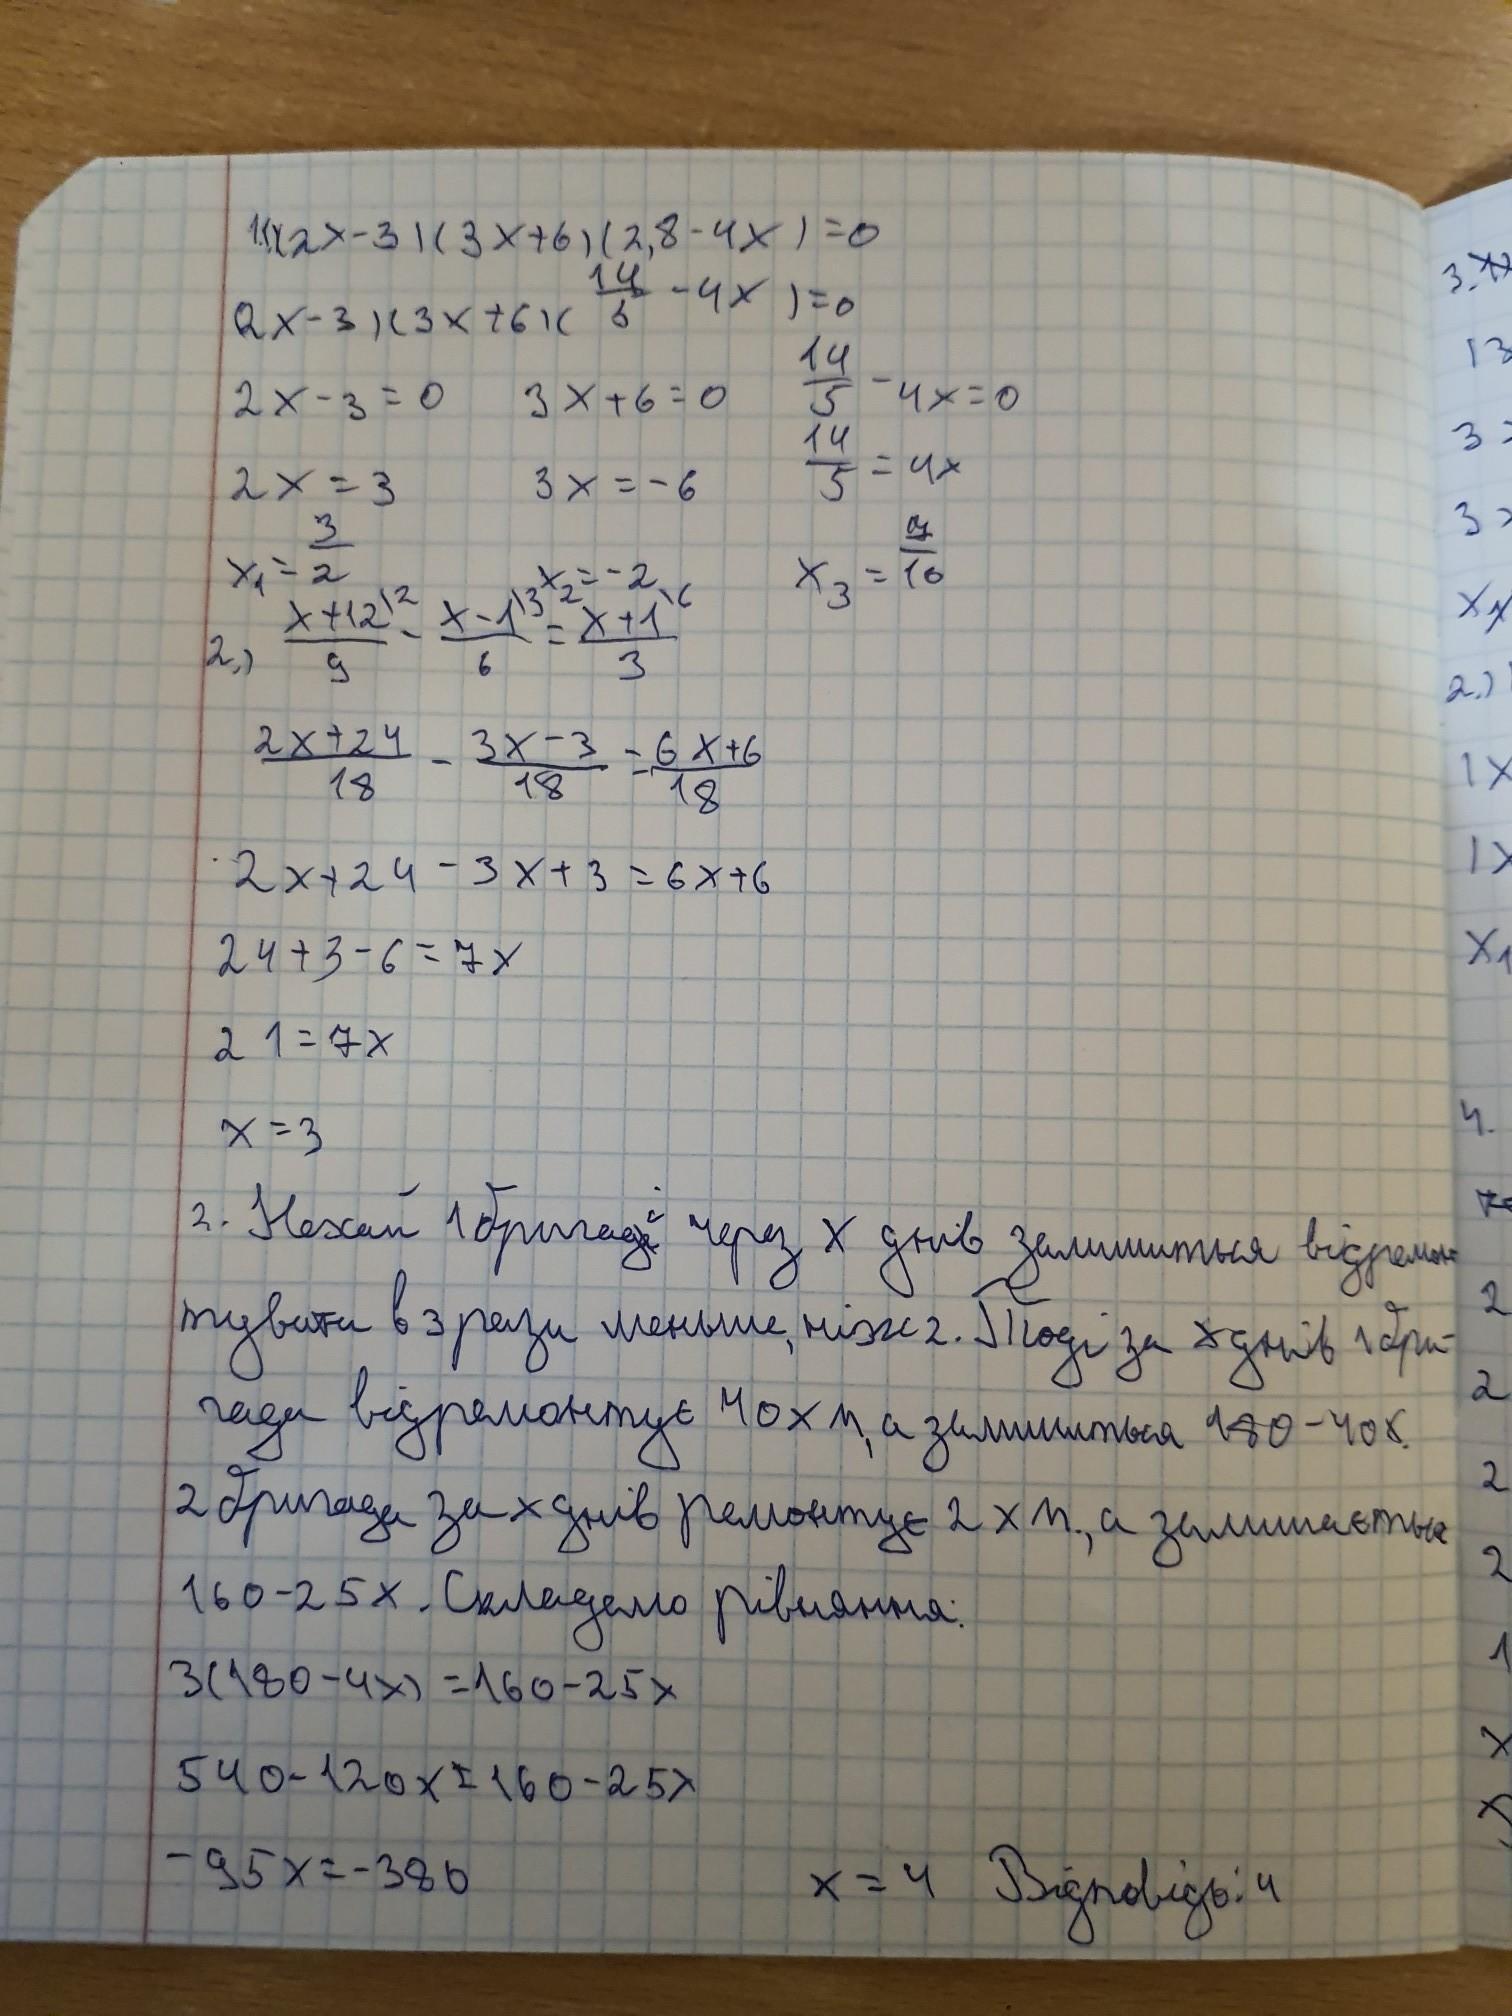 1.)(2x-3)(3x+6)(2,8-4x)=0
(2x-3)(3x+6)(14/5-4x)=0
2x-3=0 3x+6=0 14/5-4x=0
2x=3 3x=-6 14/5=4x
x₁=3/2 x₂=-2 x₃=7/10
2.) x+12\2/9 - x-1\3/6 = x+1\6/3
2x+24/18 - 3x-3/18 = 6x+6/18
2x+24-3x+3=6x+6
24+3-6=7x
21=7x
x=3
2. Нехай 1 бригаді через x днів залишиться відремон
тувати в 3 рази меньше, ніж 2. Тоді за x днів 1 бри-
гада відремонтує 40x м, а залишиться 180-40x.
2 бригада за x днів ремонтує 2x м., а залишається
160-25x. Складемо рівняння:
3(180-4x)=160-25x
540-120x=160-25x
-95x=-380 x=4 Відповідь: 4
3.
13
3
3
x₁
2.)
1x
1x
x₁
4.
2
2
2
2
1
x